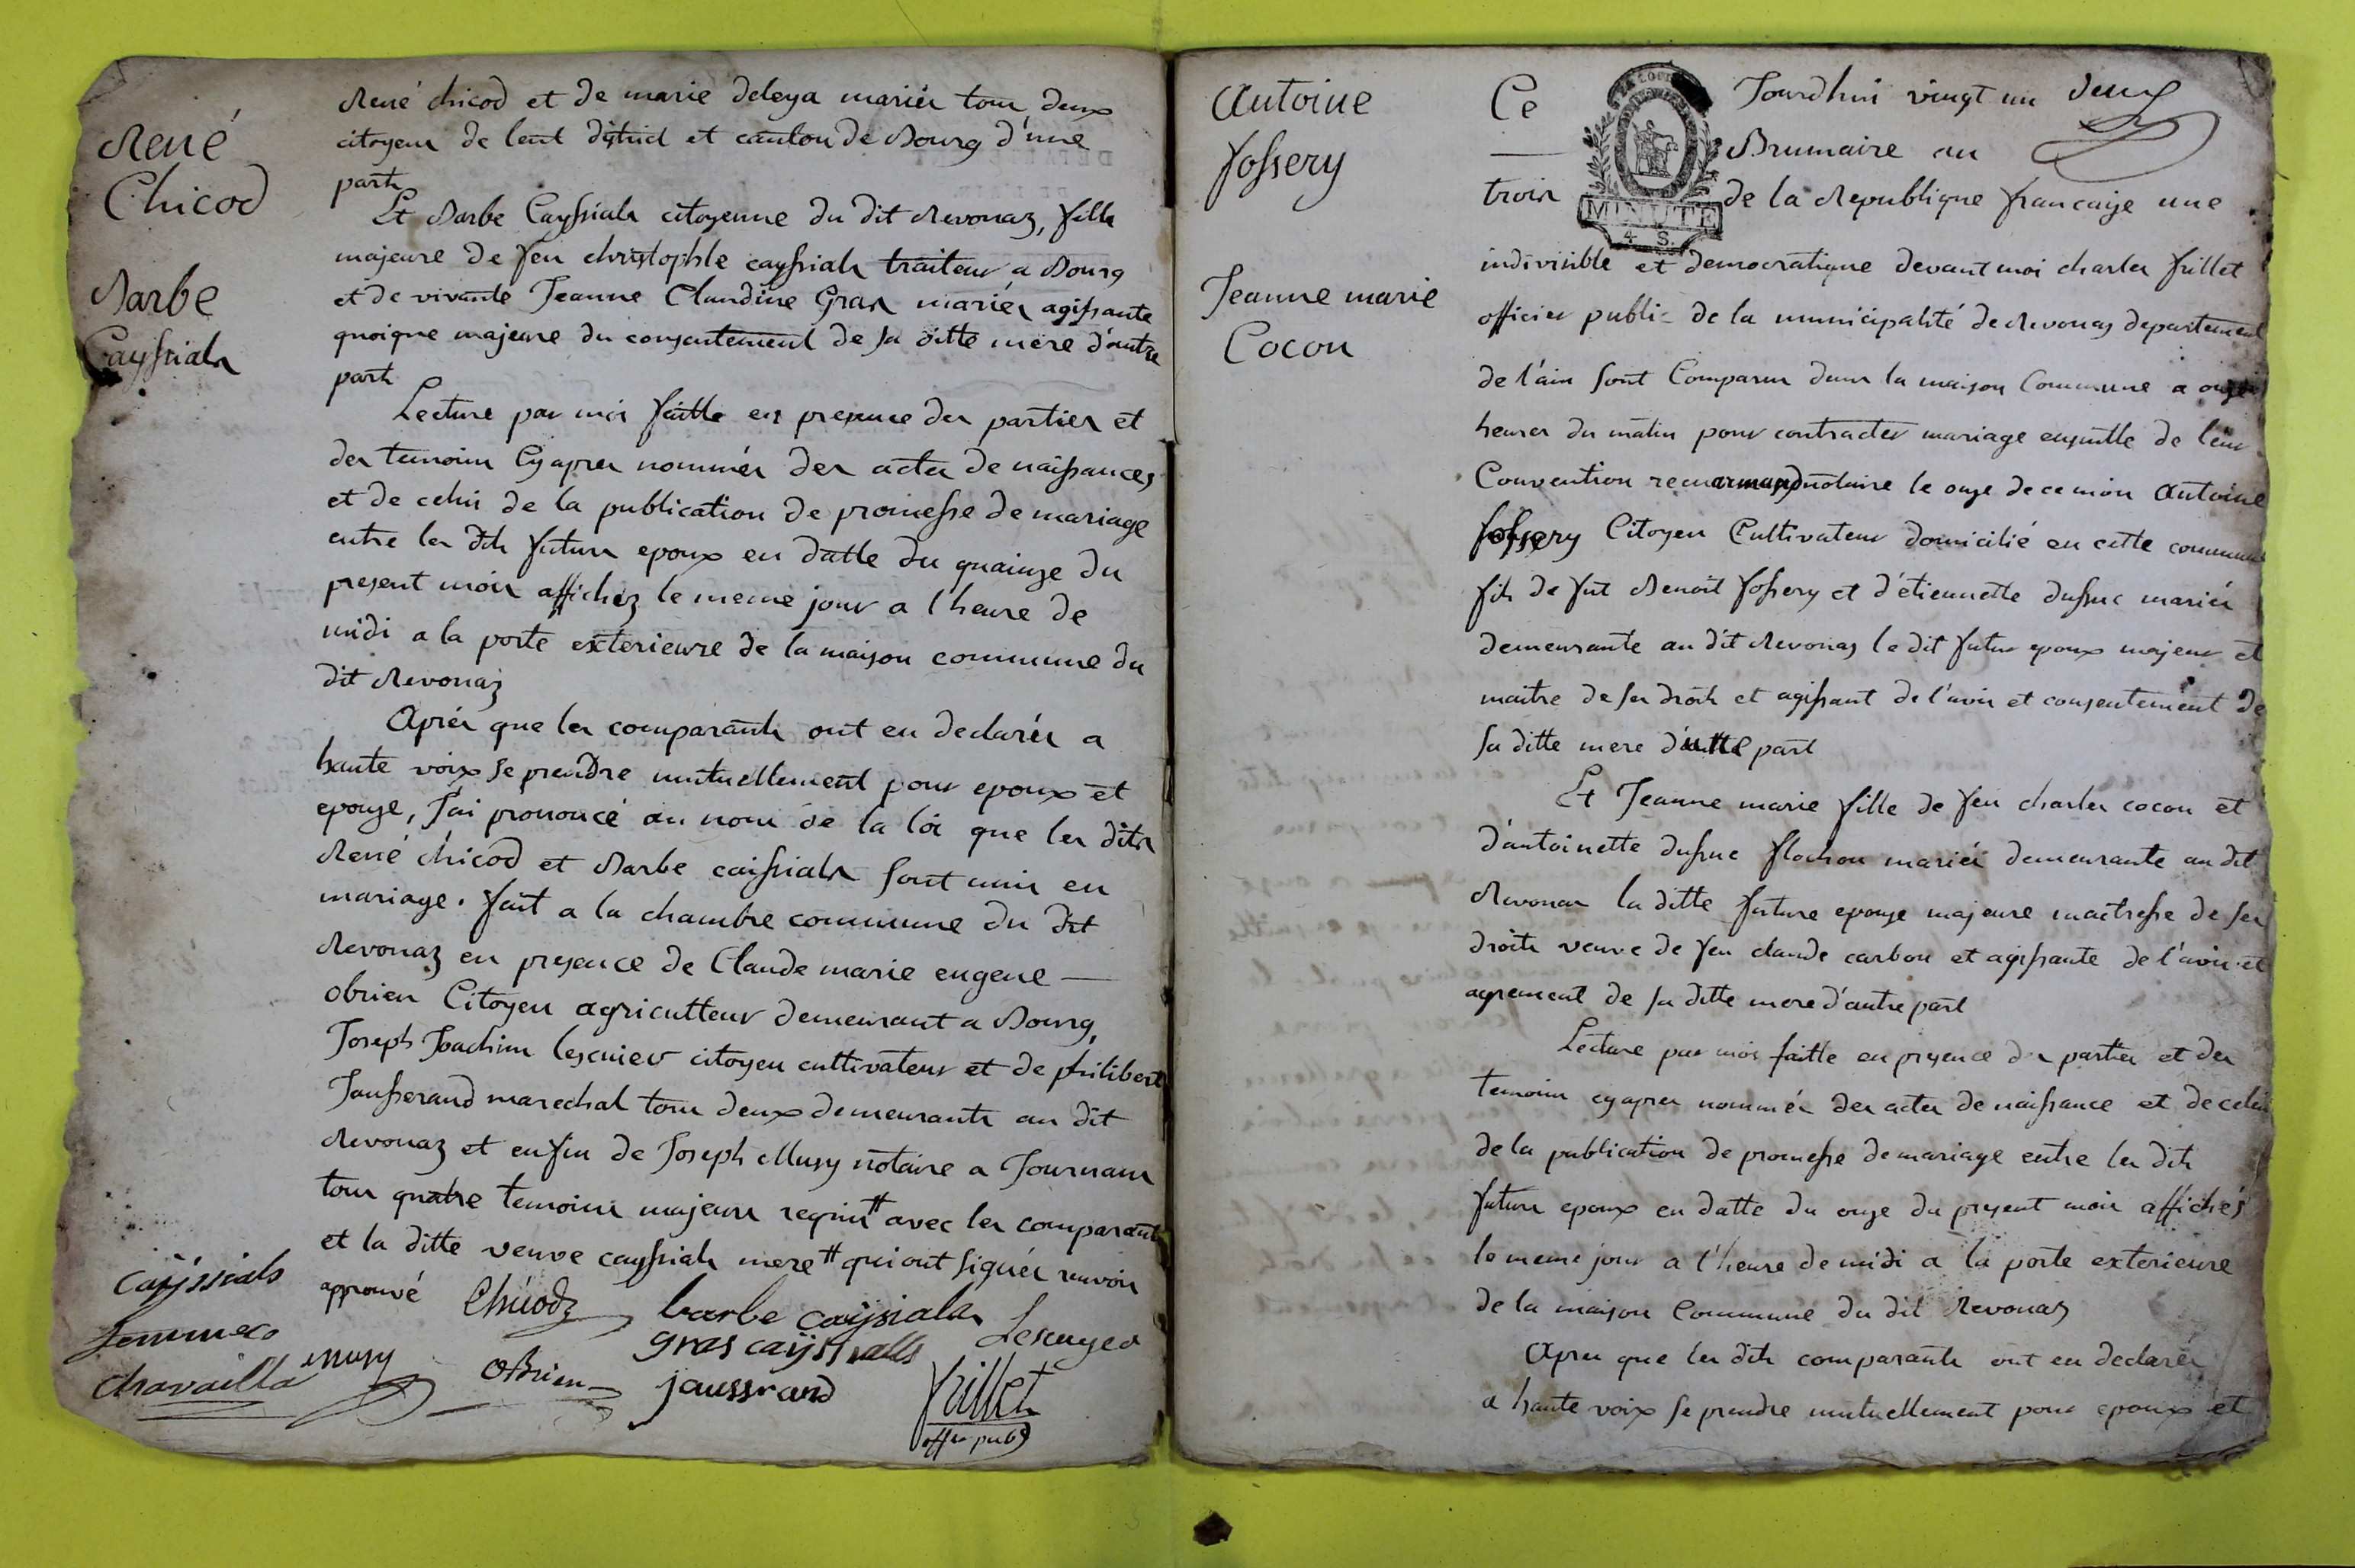 René
Chicod
Barbe
Cayssials
René chicod et de marie deleya mariés tous deux
citoyens de lent district et canton de Bourg d'une
part
Et Barbe Cayssials citoyenne du dit Revonaz, fille
majeure de feu christophle cayssials traiteur a Bourg
et de vivante Jeanne Claudine Gras mariés agissante
quoique majeure du consentement de sa ditte mere d'autre
part
Lecture par moi faitte en presence des parties et
des temoins cy apres nommés des actes de naissances
et de celui de la publication de promesse de mariage
entre les dits futurs epoux en datte du quainze du
present mois affichez le meme jour a l'heure de
midi a la porte exterieure de la maison commune du
dit Revonaz
Aprés que les comparants ont eu declarés a
haute voix se prendre mutuellement pour epoux et
epouse, J'ai prononcé au nom de la loi que les dits
René chicod et Barbe caissials sont unis en
mariage. fait a la chambre commune du dit
Revonaz en presence de Claude marie eugene —
obrien Citoyen agriculteur demeurant a Bourg,
Joseph Joachim lescuier citoyen cultivateur et de philibert
Jausserand marechal tous deux demeurants au dit
Revonaz et enfin de Joseph Musy notaire a Journans
tous quatre temoins majeurs requis # avec les comparants
et la ditte veuve cayssials mere # qui ont signés renvois
approuvé
Chicodz barbe cayssials Lescuyer
cayssials
femme
chavailla musy obrien gras cayssialls
jaussrand
frillet
offer public
Antoine
fossery
Jeanne marie
Cocon
Ce Jourdhui vingt un deux
Brumaire an
trois de la Republique francaise une
MINUTE
4 S.
indivisible et democratique devant moi charles frillet
officier public de la municipalité de Revonas departement
de l'ain sont Comparus dans la maison Commune a onze
heures du matin pour contracter mariage ensuitte de leur
Convention recu notaire le onze de ce mois Antoine
fossery Citoyen Cultivateur domicilié en cette commune
fils de fut Benoit fossery et d'étiennette dussuc mariés
demeurante au dit Revonas le dit futur epoux majeur et
maitre de ses droits et agissant de l'avis et consentement de
sa ditte mere d'une part
Et Jeanne marie fille de feu charles cocon et
d'antoinette dussuc flochon mariés demeurante au dit
Revonas la ditte future epouse majeure maitresse de ses
droits veuve de feu claude carbon et agissante de l'avis et
agrement de sa ditte mere d'autre part
Lecture par moi faitte en presence des parties et des
temoins cy apres nommés des actes de naissance et de celui
de la publication de promesse de mariage entre les dits
futurs epoux en datte du onze du present mois affichés
le meme jour a l'heure de midi a la porte exterieure
de la maison Commune du dit Revonas
Apres que les dits comparants ont eu declarés
a haute voix se prendre mutuellement pour epoux et